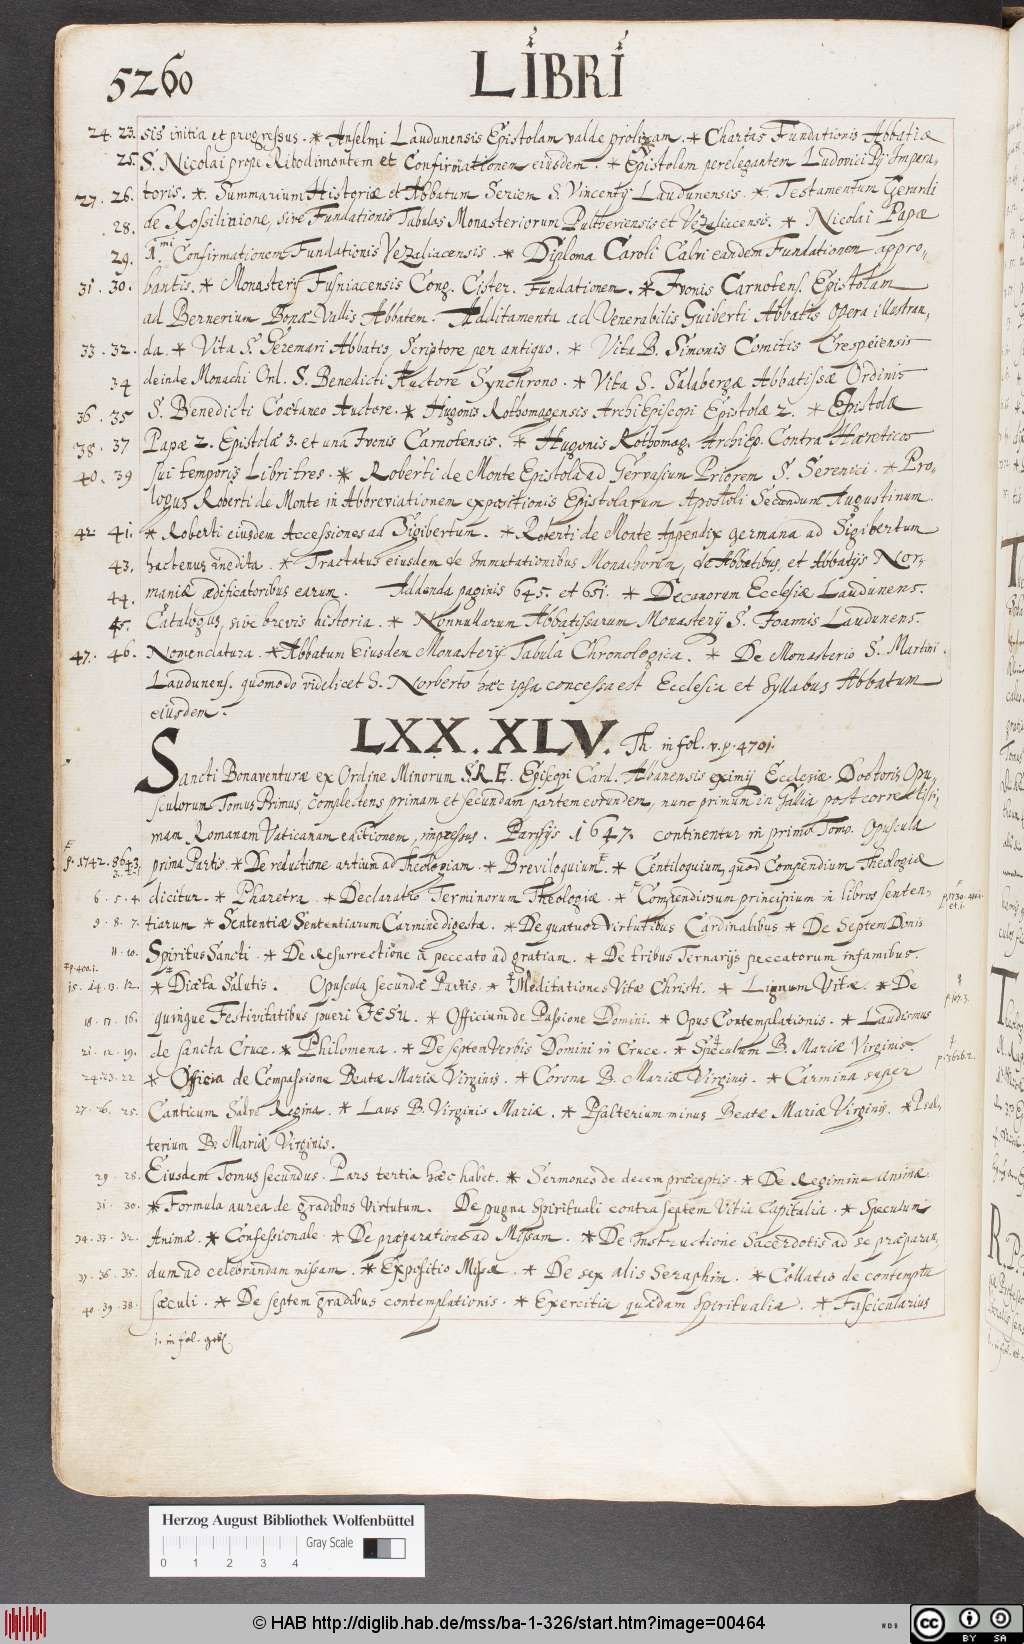 5260 LIBRI
24. 23. sis initia et progressus. * Anselmi Laudunensis Epistolam valde prolixam. * Chartas Fundationis Abbatiæ
25. S. Nicolai prope Ribodimontem et Confirmationem eiusdem. * Epistolam perelegantem Ludovici Pij Impera-
27. 26. toris. * Summarium Historiæ et Abbatum Seriem S. Vincentij Laudunensis. * Testamentum Gerardi
28. de Rossilinione, sive Fundationis Tabulas Monasteriorum Pultheriensis et Vezeliacensis. * Nicolai Papæ
29. 1.mi Confirmationem Fundationis Vezeliacensis. * Diploma Caroli Calvi eandem Fundationem appro-
31. 30. bantis. * Monasterij Fusniacensis Cong. Cister. Fundationem. * Ivonis Carnotens. Epistolam
ad Bernerium Bonæ Vallis Abbatem. Additamenta ad Venerabilis Guiberti Abbatis Opera illustran-
33. 32. da. * Vita S. Geremari Abbatis, Scriptore per antiquo. * Vita B. Simonis Comitis Crespeiensis
34 deinde Monachi Ord. S. Benedicti Auctore Synchrono. * Vita S. Salabergæ Abbatissæ Ordinis
36. 35 S. Benedicti Coætaneo Auctore. * Hugonis Rothomagensis Archi Episcopi Epistolæ 2. * Epistolæ
38. 37 Papæ 2. Epistolæ 3. et una Ivonis Carnotensis. * Hugonis Rothomag. Archiep. Contra Hæreticos
40. 39 sui temporis Libri tres. * Roberti de Monte Epistola ad Gervasium Priorem S. Serenici. * Pro-
logus Roberti de Monte in Abbreviationem expositionis Epistolarum Apostoli Secundum Augustinum.
42 41. * Roberti eiusdem Accessiones ad Sigibertum. * Roberti de Monte Appendix germana ad Sigibertum
43. hactenus inedita. * Tractatus eiusdem de Immutationibus Monachorum, de Abbatibus, et Abbatijs Nor-
44. maniæ ædificatoribus earum. Addenda paginis 645. et 651. * Decanorum Ecclesiæ Laudunens.
45. Catalogus, sive brevis historia. * Nonnullarum Abbatissarum Monasterij S. Joannis Laudunens.
47. 46. Nomenclatura. * Abbatum Eiusdem Monasterij Tabula Chronologica. * De Monasterio S. Martini
Laudunens. quomodo videlicet S. Norberto hæc ipsa concessa est Ecclesia et Syllabus Abbatum
eiusdem.
LXX. XLV. Th. in fol. v. p. 4701.
Sancti Bonaventuræ ex Ordine Minorum S.R.E. Episcopi Card. Albanensis eximij Ecclesiæ Doctoris Opu-
sculorum Tomus Primus, complectens primam et secundam partem eorundem, nunc primum in Gallia post correctissi-
mam Romanam Vaticanam editionem, impressus. Parisijs 1647. continentur in primo Tomo. Opuscula
prima Partis. * De reductione artium ad Theologiam. * Breviloquium * Centiloquium, quod Compendium Theologiæ
6. 5. 4. dicitur. * Pharetra. * Declaratio Terminorum Theologiæ. * Compendiosum principium in libros senten-
9. 8. 7. tiarum * Sententiæ Sententiarum Carmine digestæ. * De quatuor Virtutibus Cardinalibus * De Septem Donis
11. 10. Spiritus Sancti. * De Resurrectione a peccato ad gratiam. * De tribus Ternarijs peccatorum infamibus.
15. 14. 13. 12. * Diæta Salutis. Opuscula secundæ Partis. * Meditationes Vitæ Christi. * Lignum Vitæ. * De
18. 17. 16. quinque Festivitatibus pueri JESU. * Officium de Passione Domini. * Opus Contemplationis. * Laudismus
21. 20. 19. de sancta Cruce. * Philomena. * De septem Verbis Domini in Cruce. * Speculum B. Mariæ Virginis.
24. 23. 22 * Officia de Compassione Beatæ Mariæ Virginis. * Corona B. Mariæ Virginis. * Carmina super
27. 26. 25. Canticum Salve Regina. * Laus B. Virginis Mariæ. * Psalterium minus Beatæ Mariæ Virginis. * Psal-
terium B. Mariæ Virginis.
29. 28. Eiusdem Tomus secundus. Pars tertia hæc habet. * Sermones de decem præceptis. * De Regimine animæ
31. 30. * Formula aurea de gradibus Virtutum. De pugna Spirituali contra septem Vitia Capitalia. * Speculum
34. 33. 32. Animæ. * Confessionale. * De præparatione ad Missam. * De Instructione Sacerdotis ad se præparan-
37. 36. 35. dum ad celebrandam missam. * Expositio Missæ. * De sex alis Seraphin. * Collatio de contemptu
40. 39. 38. sæculi. * De septem gradibus contemplationis. * Exercitia quædam Spiritualia. * Fascicularius
1. in fol. geb.
Herzog August Bibliothek Wolfenbüttel
Gray Scale
0 1 2 3 4
© HAB http://diglib.hab.de/mss/ba-1-326/start.htm?image=00464
WDB
cc BY SA